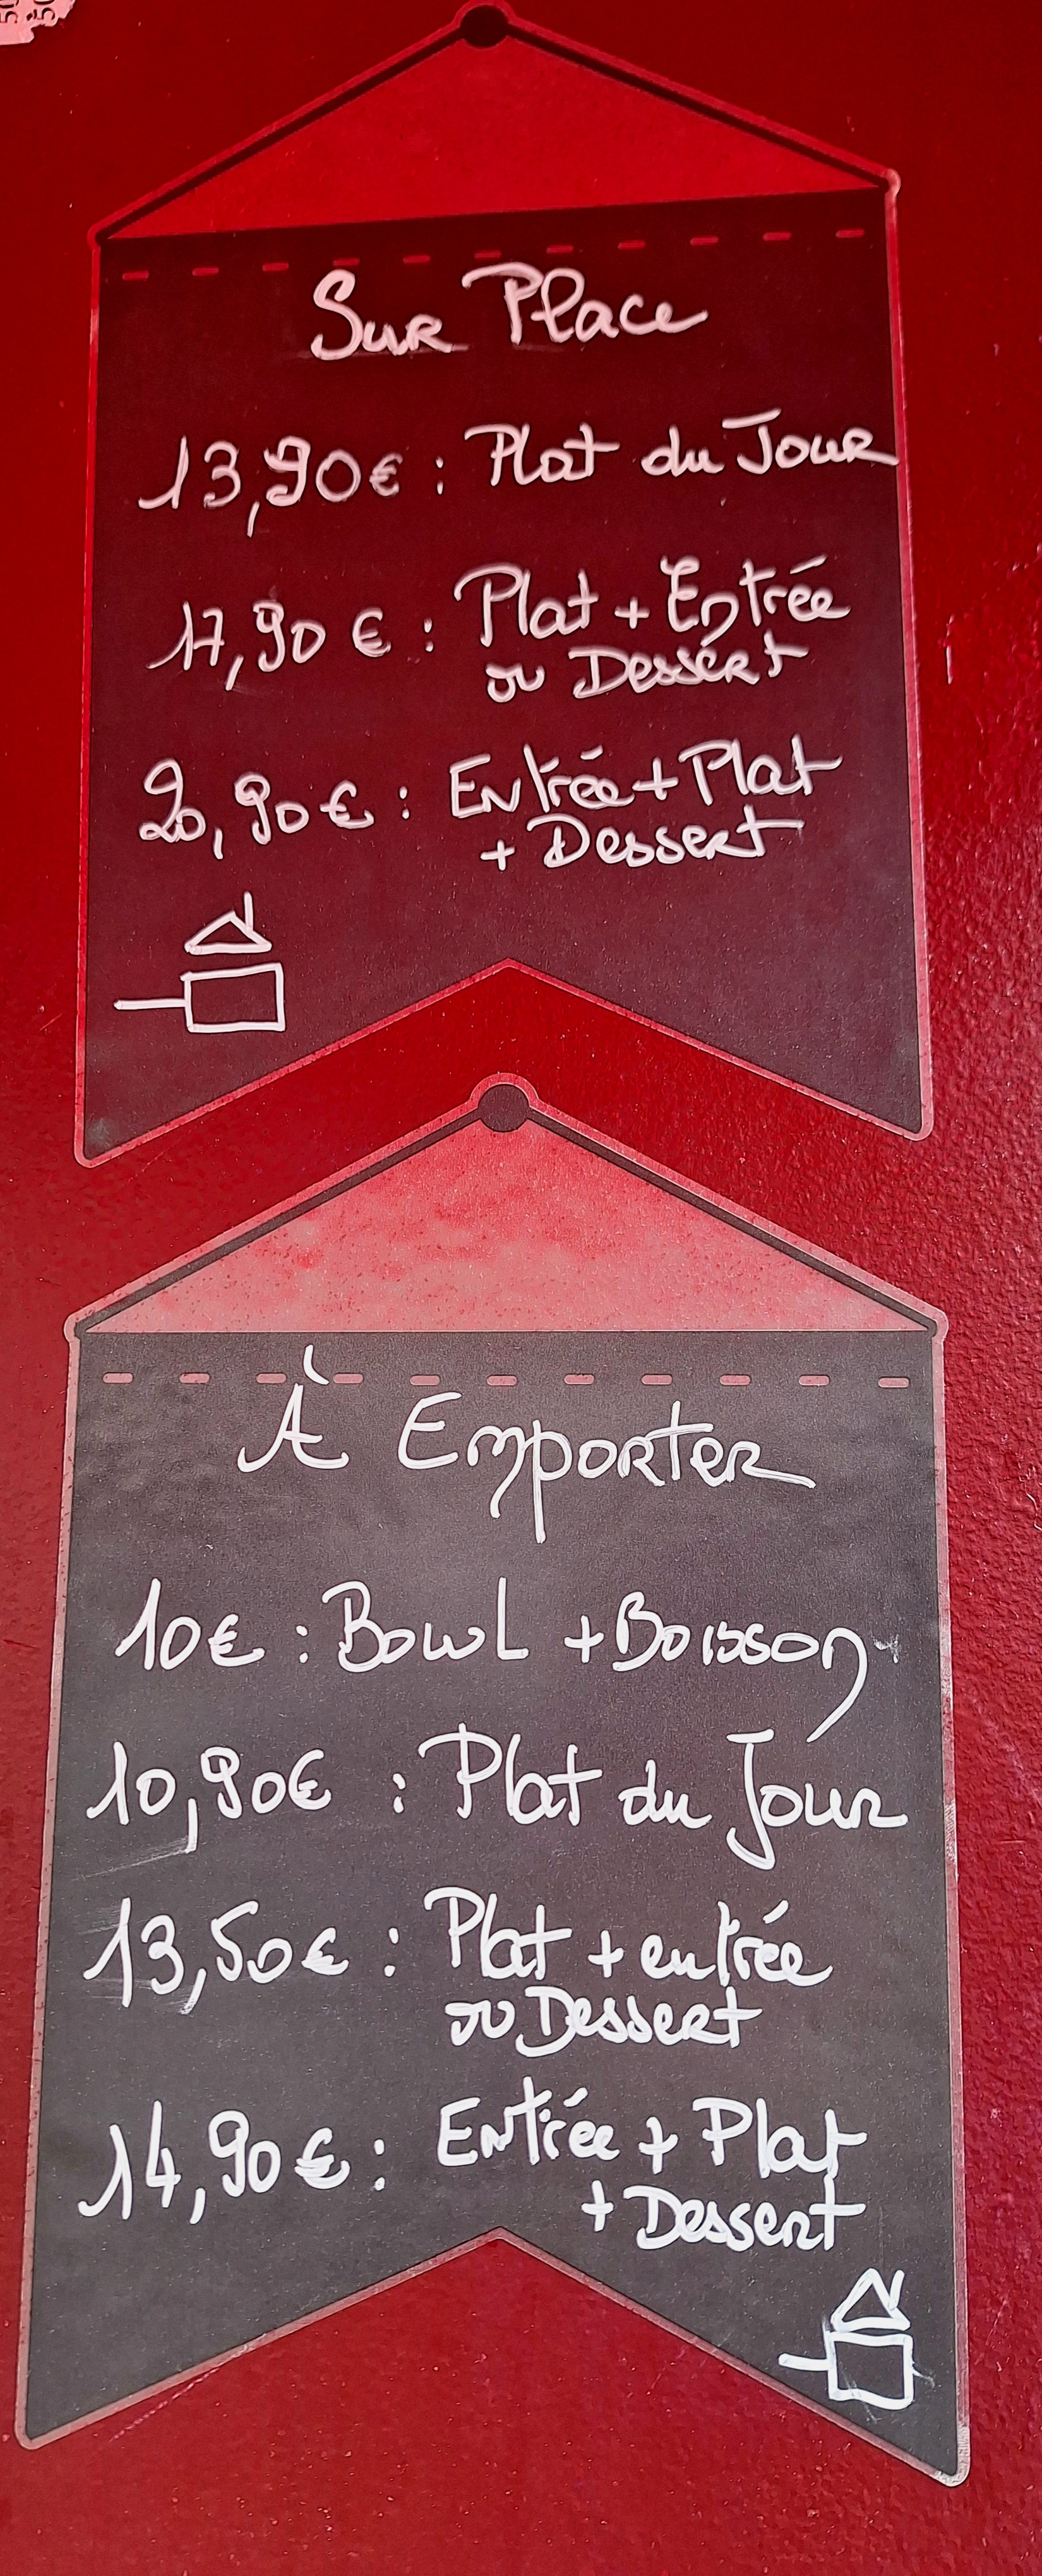 Sur Place
13,90€ : Plat du Jour
17,90 € : Plat + Entrée
ou Dessert
20,90€ : Entrée + Plat
+ Dessert
À Emporter
10€ : Bowl + Boisson
10,90€ : Plat du Jour
13,50€ : Plat + entrée
ou Dessert
14,90€ : Entrée + Plat
+ Dessert